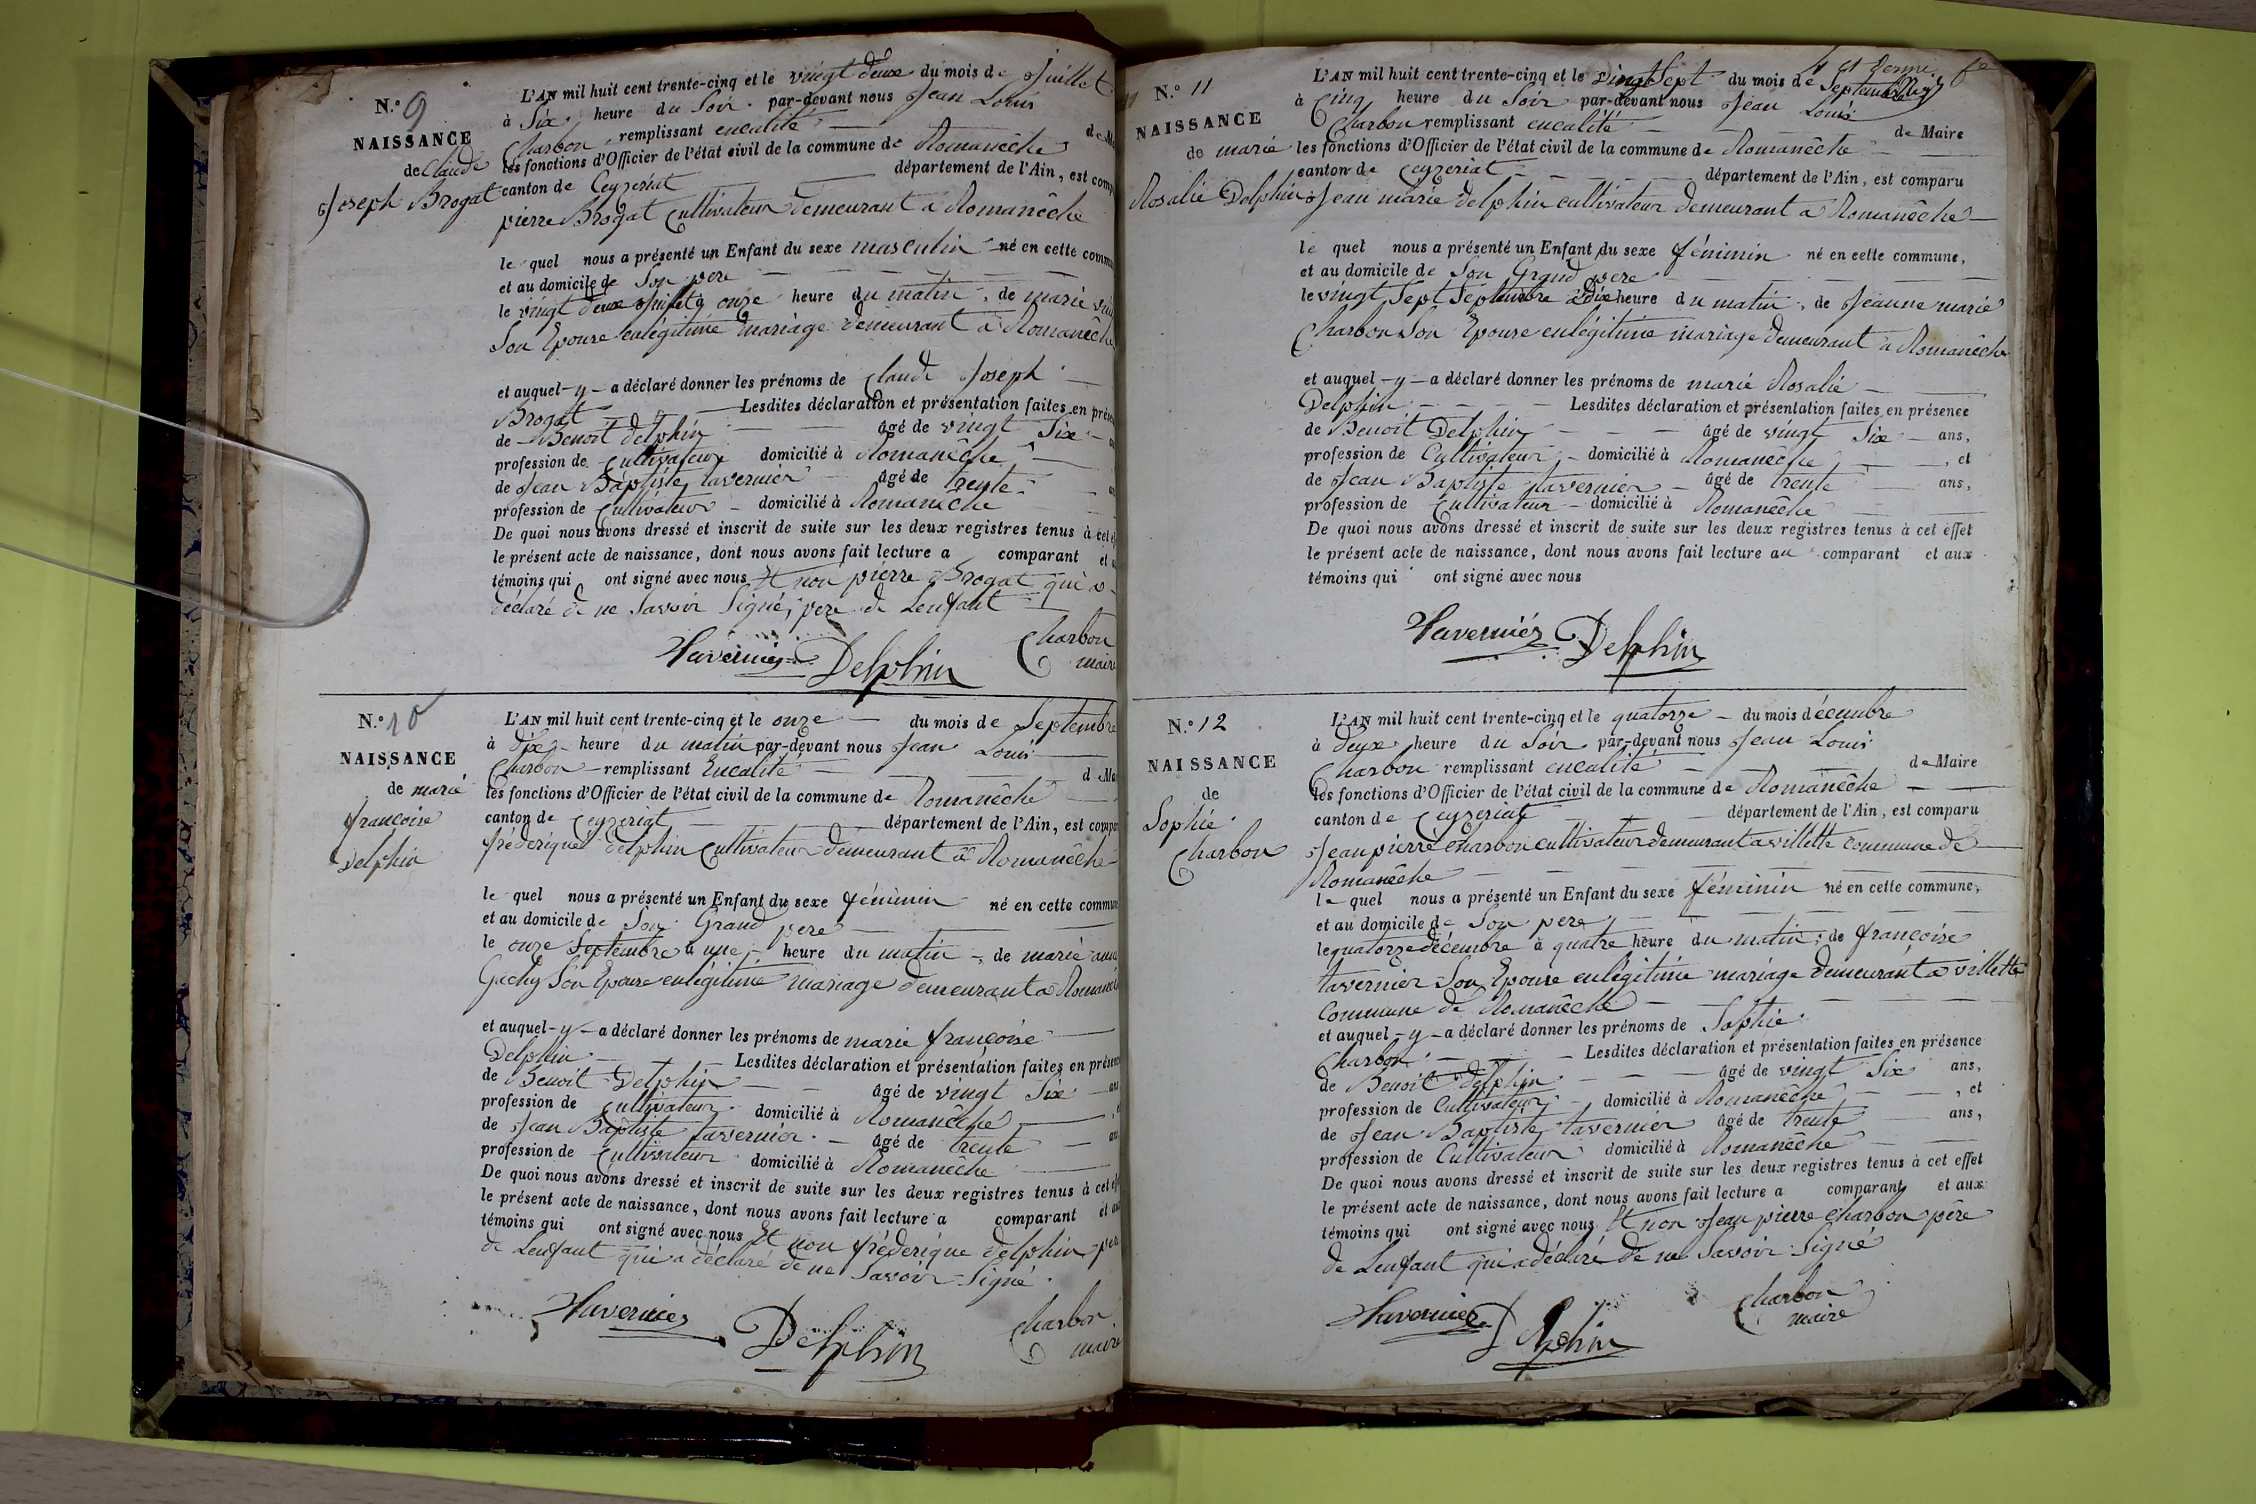 N.o 9
NAISSANCE
de Claude
Joseph Brogat
L'AN mil huit cent trente-cinq et le vingt deux du mois de Juillet
à Six heure du Soir par-devant nous Jean Louis
Charbon remplissant encalité de Ma
les fonctions d'Officier de l'état civil de la commune de Romanêche
canton de Ceyzeriat département de l'Ain, est comp
pierre Brogat Cultivateur demeurant à Romanêche
le quel nous a présenté un Enfant du sexe masculin né en cette commu
et au domicile de Son pere
le vingt deux Juillet à onze heure du matin, de marie
Son Epouse enlégitime mariage demeurant à Romanêche
et auquel-y-a déclaré donner les prénoms de Claude Joseph
Brogat Lesdites déclaration et présentation faites en prése
de Benoit delphin âgé de vingt Six
profession de Cultivateur domicilié à Romanêche
de Jean Baptiste tavernier âgé de trente
profession de Cultivateur domicilié à Romanêche
De quoi nous avons dressé et inscrit de suite sur les deux registres tenus à cet e
le présent acte de naissance, dont nous avons fait lecture a comparant et
témoins qui ont signé avec nous Et non pierre Brogat qui a
déclaré de ne Savoir Signé, pere de Lenfant
Tavernier Delphin Charbon
maire
N.o 10
NAISSANCE
de marie
françoise
Delphin
L'AN mil huit cent trente-cinq et le onze du mois de Septembre
à dix heure du matin par-devant nous Jean Louis
Charbon remplissant Encalité de Ma
les fonctions d'Officier de l'état civil de la commune de Romanêche
canton de Ceyzeriat département de l'Ain, est compa
fréderique delphin Cultivateur demeurant à Romanêche
le quel nous a présenté un Enfant du sexe féminin né en cette commune
et au domicile de Son Grand pere
le onze Septembre à une heure du matin, de marie anne
Gachy Son Epouse enlégitime mariage demeurant à Romanêche
et auquel-y-a déclaré donner les prénoms de marie françoise
Delphin Lesdites déclaration et présentation faites en présenc
de Benoit Delphin âgé de vingt Six ans
profession de Cultivateur domicilié à Romanêche
de Jean Baptiste tavernier âgé de trente an
profession de Cultivateur domicilié à Romanêche
De quoi nous avons dressé et inscrit de suite sur les deux registres tenus à cet ef
le présent acte de naissance, dont nous avons fait lecture a comparant et au
témoins qui ont signé avec nous Et non fréderique delphin pere
de Lenfant qui a déclaré de ne Savoir Signé
Tavernier Delphin Charbon
maire
4 et
N.o 11
NAISSANCE
de marie
Rosalie Delphin
L'AN mil huit cent trente-cinq et le vingt Sept du mois de Septembre
à Cinq heure du Soir par-devant nous Jean Louis
Charbon remplissant encalité de Maire
les fonctions d'Officier de l'état civil de la commune de Romanêche
canton de Ceyzeriat département de l'Ain, est comparu
Jean marie delphin cultivateur demeurant à Romanêche
le quel nous a présenté un Enfant du sexe féminin né en cette commune,
et au domicile de Son Grand pere
le vingt Sept Septembre à dix heure du matin, de Jeanne marie
Charbon Son Epouse enlégitime mariage demeurant à Romanêche
et auquel-y-a déclaré donner les prénoms de marie Rosalie
Delphin Lesdites déclaration et présentation faites en présence
de Benoit Delphin âgé de vingt Six ans,
profession de Cultivateur domicilié à Romanêche, et
de Jean Baptiste tavernier âgé de trente ans,
profession de Cultivateur domicilié à Romanêche
De quoi nous avons dressé et inscrit de suite sur les deux registres tenus à cet effet
le présent acte de naissance, dont nous avons fait lecture au comparant et aux
témoins qui ont signé avec nous
Tavernier Delphin
N.o 12
NAISSANCE
de
Sophie
Charbon
L'AN mil huit cent trente-cinq et le quatorze du mois décembre
à deux heure du Soir par-devant nous Jean Louis
Charbon remplissant encalité de Maire
les fonctions d'Officier de l'état civil de la commune de Romanêche
canton de Ceyzeriat département de l'Ain, est comparu
Jean pierre Charbon cultivateur demeurant a villette commune de
Romanêche
le quel nous a présenté un Enfant du sexe féminin né en cette commune,
et au domicile de Son pere
le quatorze décembre à quatre heure du matin, de françoise
tavernier Son Epouse enlégitime mariage demeurant a villette
Commune de Romanêche
et auquel-y-a déclaré donner les prénoms de Sophie
Charbon Lesdites déclaration et présentation faites en présence
de Benoit delphin âgé de vingt Six ans,
profession de Cultivateur domicilié à Romanêche, et
de Jean Baptiste tavernier âgé de trente ans,
profession de Cultivateur domicilié à Romanêche
De quoi nous avons dressé et inscrit de suite sur les deux registres tenus à cet effet
le présent acte de naissance, dont nous avons fait lecture a comparant et aux
témoins qui ont signé avec nous Et non Jean pierre Charbon père
de Lenfant qui a déclaré de ne Savoir Signé
Tavernier Delphin Charbon
maire